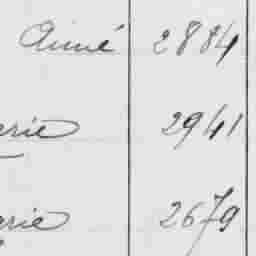 Aimé 2884
erie 2941
erie 2679